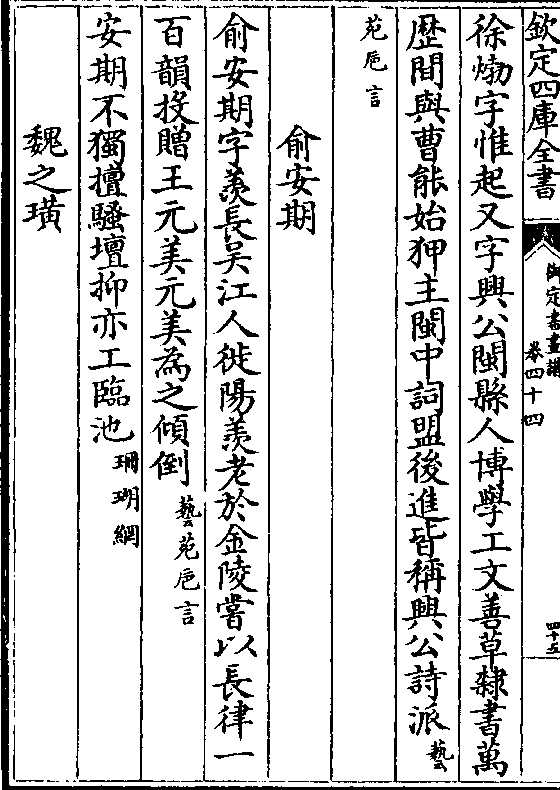 欽定四庫全書
御定書畫譜
卷四十四
四十五
徐𤊹字惟起又字興公閩縣人博學工文善草隸書萬
歴間與曹能始狎主閩中詞盟後進皆稱興公詩派藝
苑巵言
俞安期
俞安期字羨長吳江人徙陽羨老於金陵嘗以長律一
百韻投贈王元美元美為之傾倒藝苑巵言
安期不獨擅騷壇抑亦工臨池珊瑚網
魏之璜